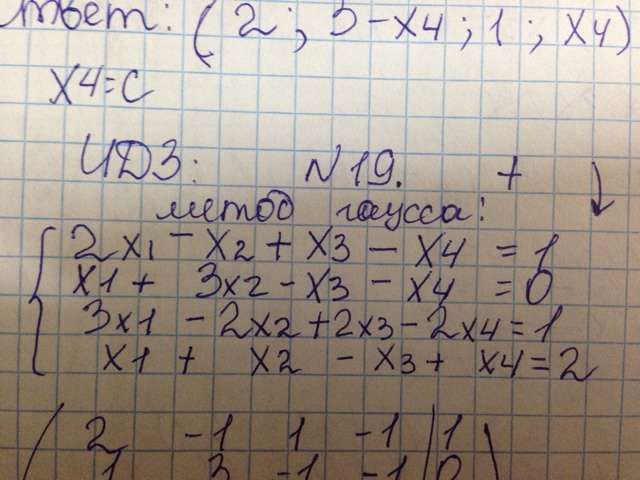 Ответ: (2; 5-x4; 1; x4)
x4=C
ИДЗ: N19. +
метод гаусса:
2x1 - x2 + x3 - x4 = 1
x1 + 3x2 - x3 - x4 = 0
3x1 - 2x2 + 2x3 - 2x4 = 1
x1 + x2 - x3 + x4 = 2
2 -1 1 -1 | 1
1 3 -1 -1 | 0